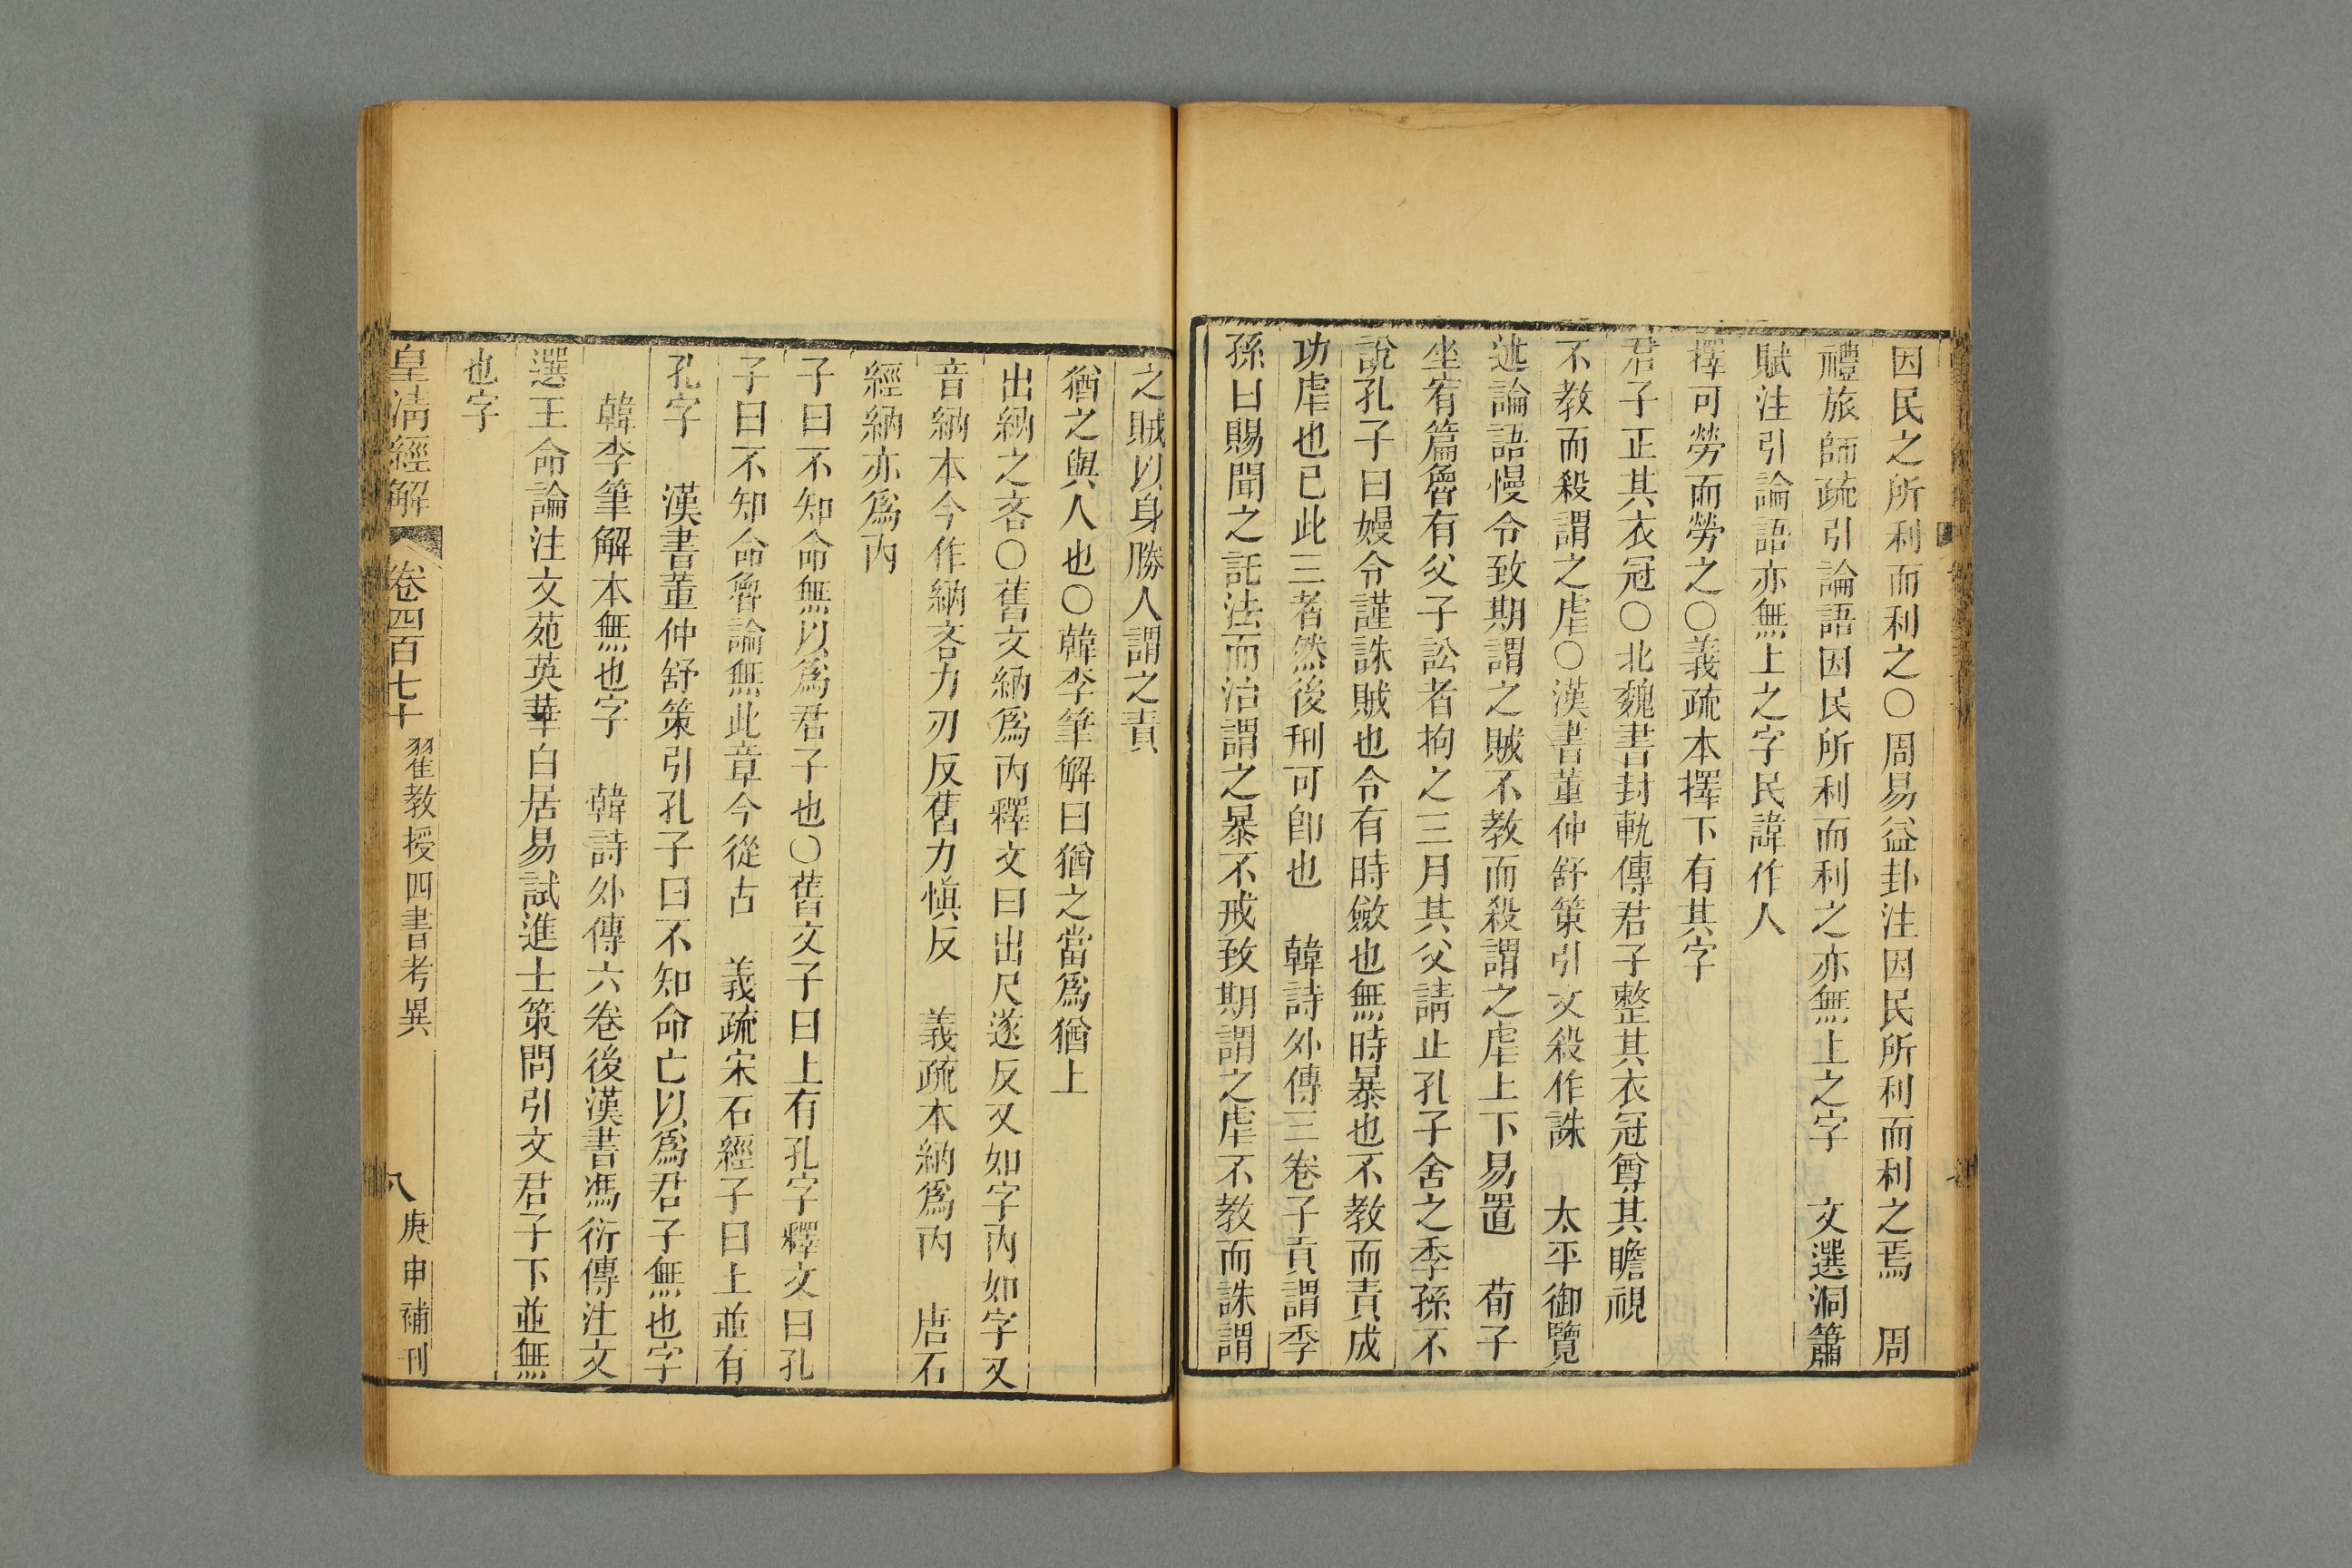 因民之所利而利之○周易益卦注因民所利而利之焉　周
禮旅師疏引論語因民所利而利之亦無上之字　文選洞簫
賦注引論語亦無上之字民諱作人
擇可勞而勞之○義疏本擇下有其字
君子正其衣冠○北魏書封軌傳君子整其衣冠尊其瞻視
不教而殺謂之虐○漢書董仲舒策引文殺作誅　太平御覽
述論語慢令致期謂之賊不教而殺謂之虐上下易置　荀子
坐宥篇魯有父子訟者拘之三月其父請止孔子舍之季孫不
說孔子曰嫚令謹誅賊也今有時斂也無時暴也不教而責成
功虐也已此三者然後刑可卽也　韓詩外傳三卷子貢謂季
孫曰賜聞之託法而治謂之暴不戒致期謂之虐不教而誅謂
之賊以身勝人謂之責
猶之與人也○韓李筆解曰猶之當爲猶上
出納之吝○舊文納爲內釋文曰出尺遂反又如字內如字又
音納本今作納吝力刃反舊力愼反　義疏本納爲內　唐石
經納亦爲內
子曰不知命無以爲君子也○舊文子曰上有孔字釋文曰孔
子曰不知命魯論無此章今從古　義疏宋石經子曰上並有
孔字　漢書董仲舒策引孔子曰不知命亡以爲君子無也字
韓李筆解本無也字　韓詩外傳六卷後漢書馮衍傳注文
選王命論注文苑英華白居易試進士策問引文君子下並無
也字
皇清經解　卷四百七十　翟教授四書考異　八　庚申補刊